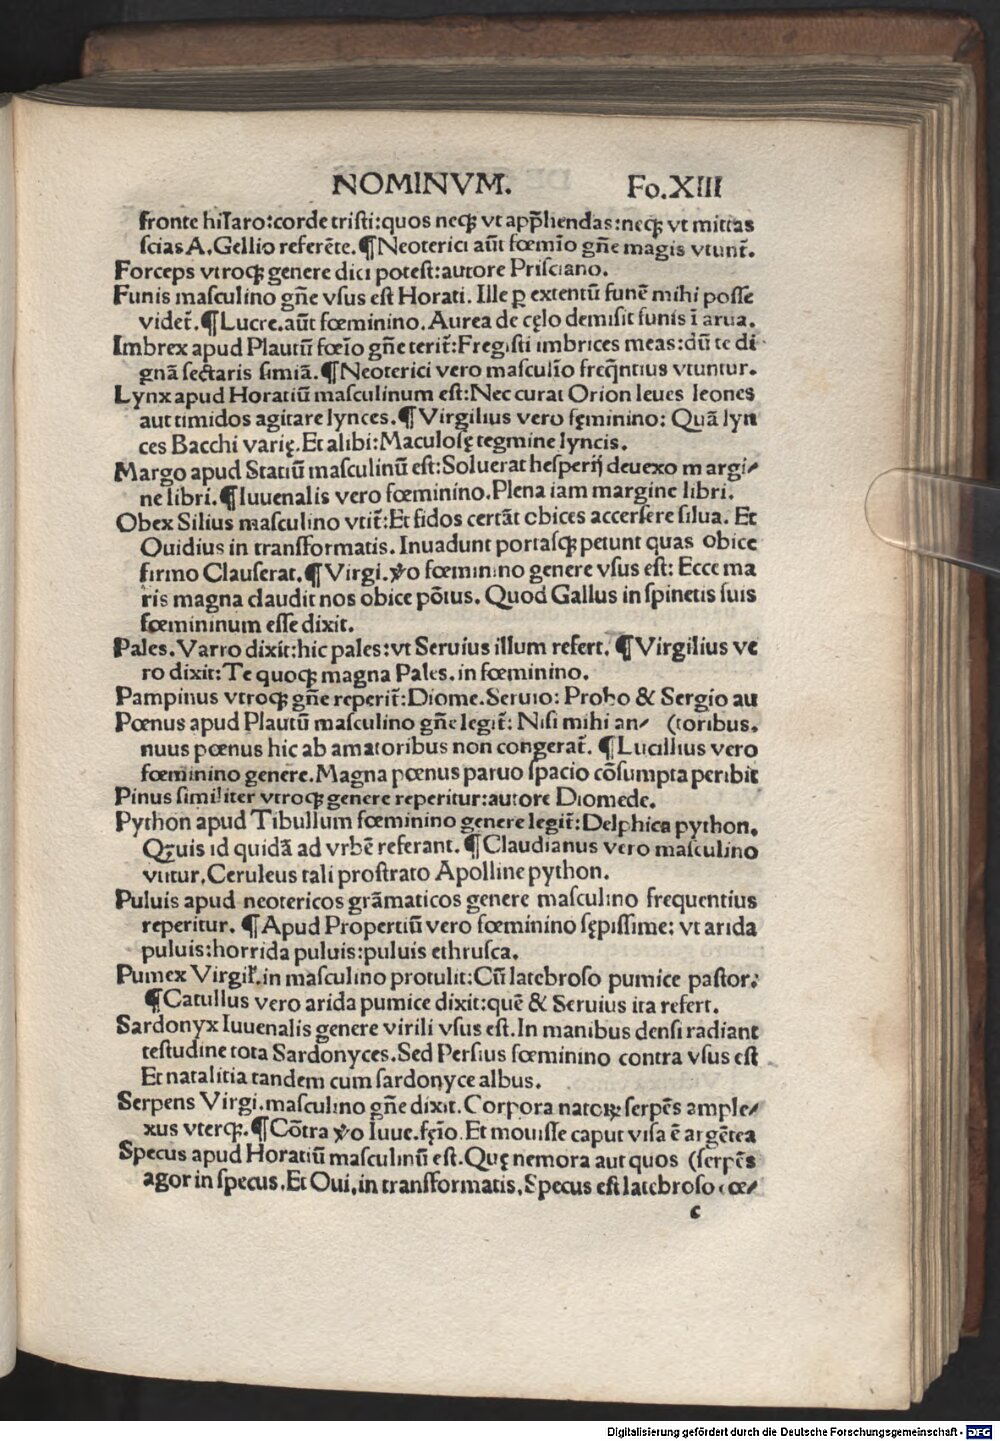 NOMINVM. Fo.XIII
fronte hilaro:corde tristi:quos neqꝫ vt app̃hendas:neqꝫ vt mittas
scias A.Gellio referẽte.¶Neoterici aũt fœmĩo gñe magis vtunt᷑.
Forceps vtroqꝫ genere dici potest:autore Prisciano.
Funis masculino gñe vsus est Horati. Ille ꝑ extentũ funẽ mihi posse
videt᷑.¶Lucre.aũt fœminino.Aurea de cęlo demisit funis ĩ arua.
Imbrex apud Plautũ fœĩo gñe terit᷑:Fregisti imbrices meas:dũ te di
gnã sectaris simiã.¶Neoterici vero masculĩo freq̃ntius vtuntur.
Lynx apud Horatiũ masculinum est:Nec curat Orion leues leones
aut timidos agitare lynces.¶Virgilius vero fęminino: Quã lyn
ces Bacchi varię.Et alibi:Maculosę tegmine lyncis.
Margo apud Statiũ masculinũ est:Soluerat hesperij deuexo margi⸗
ne libri.¶Iuuenalis vero fœminino.Plena iam margine libri.
Obex Silius masculino vtit᷑:Et fidos certãt obices accersere silua. Et
Ouidius in transformatis. Inuadunt portasqꝫ petunt quas obice
firmo Clauserat.¶Virgi.ṽo fœminino genere vsus est: Ecce ma
ris magna claudit nos obice põtus. Quod Gallus in spinetis suis
fœmininum esse dixit.
Pales. Varro dixit:hic pales:vt Seruius illum refert. ¶Virgilius ve
ro dixit:Te quoqꝫ magna Pales.in fœminino.
Pampinus vtroqꝫ gñe reperit᷑:Diome.Seruio: Probo & Sergio au
Pœnus apud Plautũ masculino gñe legit᷑: Nisi mihi an⸗ (toribus.
nuus pœnus hic ab amatoribus non congerat᷑. ¶Lucillius vero
fœminino genere.Magna pœnus paruo spacio cõsumpta peribit
Pinus similiter vtroqꝫ genere reperitur:autore Diomede.
Python apud Tibullum fœminino genere legit᷑:Delphica python.
Qꝫuis id quidã ad vrbẽ referant.¶Claudianus vero masculino
vtitur.Ceruleus tali prostrato Apolline python.
Puluis apud neotericos grãmaticos genere masculino frequentius
reperitur. ¶Apud Propertiũ vero fœminino sępissime: vt arida
puluis:horrida puluis:puluis ethrusca.
Pumex Virgil̃.in masculino protulit:Cũ latebroso pumice pastor:
¶Catullus vero arida pumice dixit:quẽ & Seruius ita refert.
Sardonyx Iuuenalis genere virili vsus est.In manibus densi radiant
testudine tota Sardonyces.Sed Persius fœminino contra vsus est
Et natalitia tandem cum sardonyce albus.
Serpens Virgi.masculino gñe dixit.Corpora natoꝝ serpẽs ample⸗
xus vterqꝫ.¶Cõtra ṽo Iuue.fęĩo.Et mouisse caput visa ẽ argẽtea
Specus apud Horatiũ masculinũ est.Quę nemora aut quos (serpẽs
agor in specus.Et Oui.in transformatis.Specus est latebroso cœ⸗
c
Digitalisierung gefördert durch die Deutsche Forschungsgemeinschaft - DFG